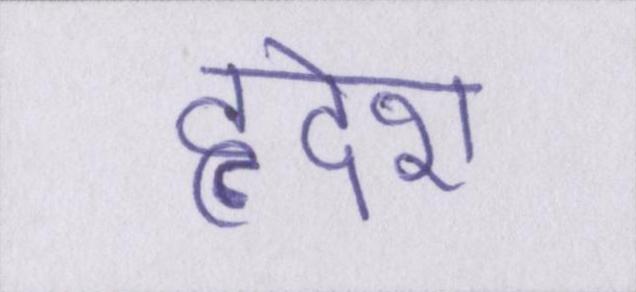 हृदेश